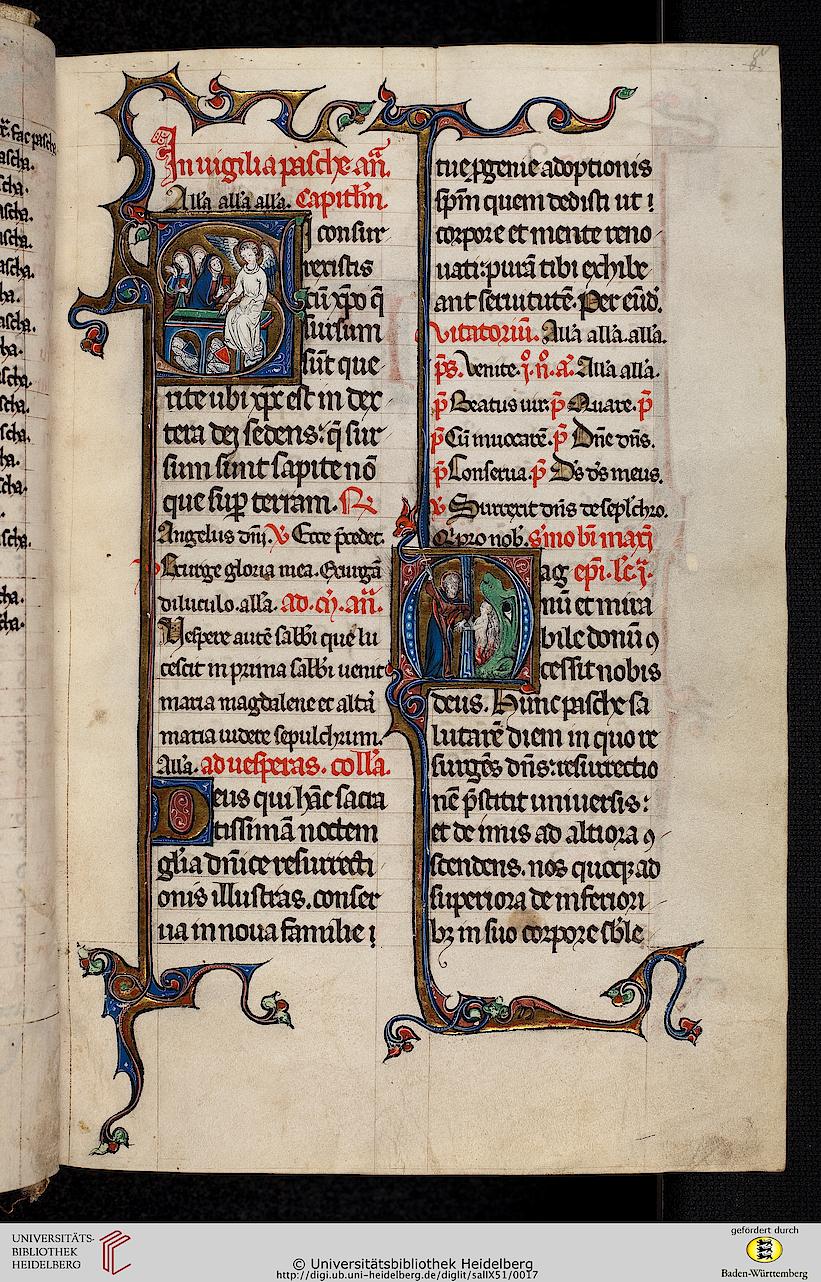 In uigilia pasche an̄.
All'a all'a all'a. Capitl'm
Si consur
rexistis
cū xp̄o q̄
sursum
sūt que
rite ubi xp̄c est in dex
tera dei sedens: q̄ sur
sum sunt sapite nō
que sup terram. R
Angelus dnī. V Ecce p̄cedet.
Exurge gloria mea. Exurgā
diluculo. all'a. ad an̄.
Vespere autē sabbi que lu
cescit in prima sabbi uenit
maria magdalene et alta
maria uidere sepulchrum.
All'a. ad uesperas. coll'a.
Deus qui hāc sacra
tissimā noctem
gl'ia dn̄ice resurrecti
onis illustras. conser
ua in noua familie
tue pgenie adoptionis
sp̄m quem dedisti ut
corpore et mente reno
uati: purā tibi exhibe
ant seruitutē. Per eūd'.
uitatoriū. All'a all'a. all'a.
ps. Venite. All'a all'a.
p Beatus uir. p Quare. p
p Cū inuocarē. p Dn̄e dn̄s.
p Conserua. p D's d's meus.
V Surrexit dn̄s de sepl'chro.
Q' pro nob'. s'mo bī maxī
Mag epī. l'c. j.
nū et mira
bile donū 9
cessit nobis
deus. Hunc pasche sa
lutarē diem in quo re
surgēs dn̄s: resurrectio
nē p̄stitit uniuersis:
et de imis ad altiora 9
scendens. nos quoq; ad
superiora de inferiori
bz in suo corpore sb'le
UNIVERSITÄTS-
BIBLIOTHEK
HEIDELBERG
© Universitätsbibliothek Heidelberg
http://digi.ub.uni-heidelberg.de/diglit/salIX51/0017
gefördert durch
Baden-Württemberg